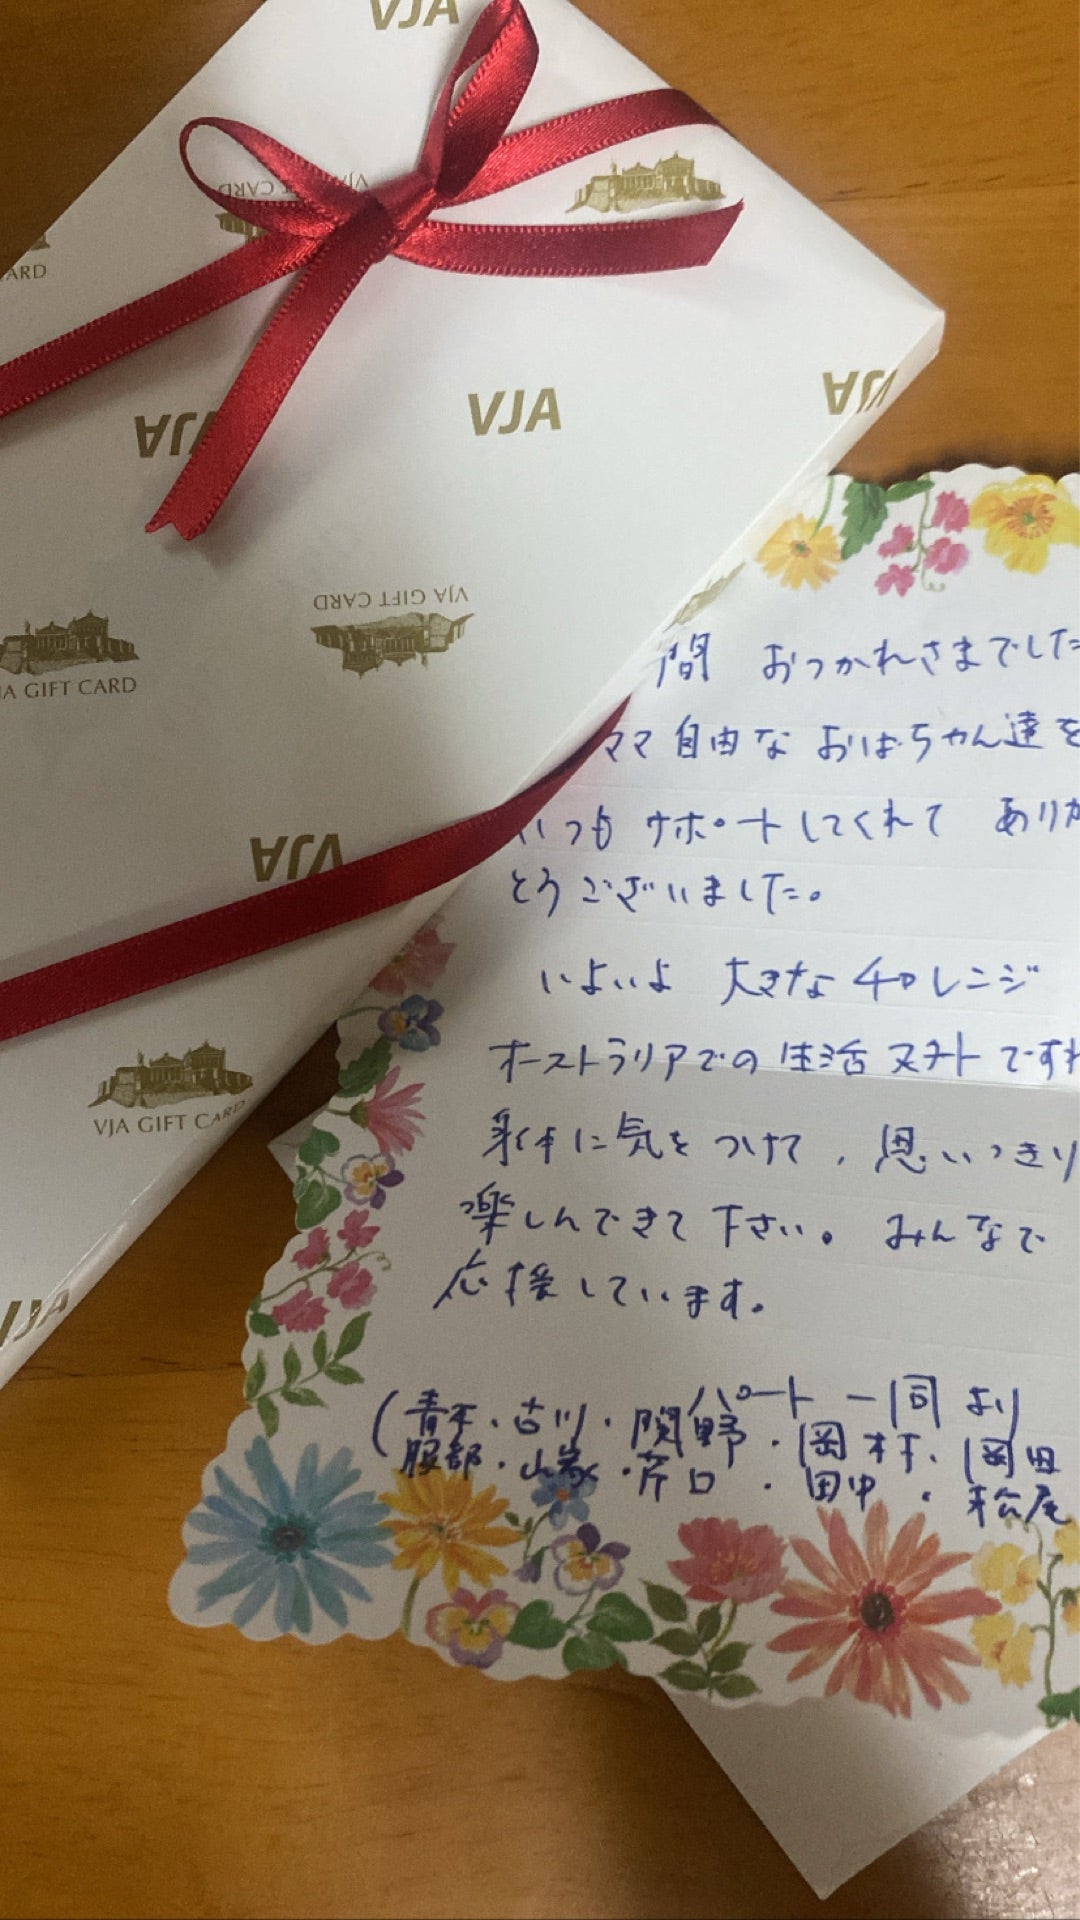 VJA
VJA GIFT CARD
ARD
VJA
VJA
VJA
VJA GIFT CARD
JA GIFT CARD
VJA
VJA GIFT CARD
VJA
間 おつかれさまでした
ママ自由な おばちゃん達を
いつも サポートしてくれて ありが
とうございました。
いよいよ 大きなチャレンジ
オーストラリアでの 生活 スタート ですね
身体に気をつけて、思いっきり
楽しんできて下さい。みんなで
応援しています。
パート一同より
(青木・古川・関野・岡村・岡田
服部・山家・芹口・田中・松尾